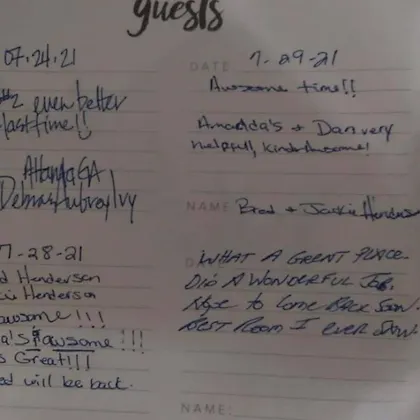 guests
07.24.21
#2 even better
last time!!
Atlanta GA
Delmas Aubrey Ivy
7-28-21
Henderson
Henderson
awesome!!!
awesome!!!
Great!!!
will be back.
DATE 7-29-21
Awesome time!!
Amandda's + Dan very
helpful, kind + Awesome!
NAME Brad + Jackie Henderson
WHAT A GREAT PLACE
DID A WONDERFUL JOB.
HOPE TO COME BACK SOON.
BEST ROOM I EVER SAW.
NAME: